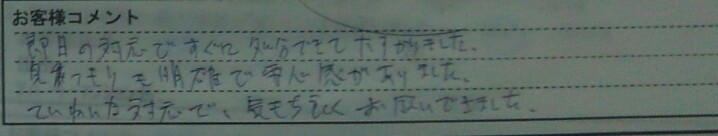 お客様コメント
即日の対応ですぐに処分できてたすかりました。
見積つもりも明確で安心感がありました。
ていねいな対応で、気もちよくお願いできました。